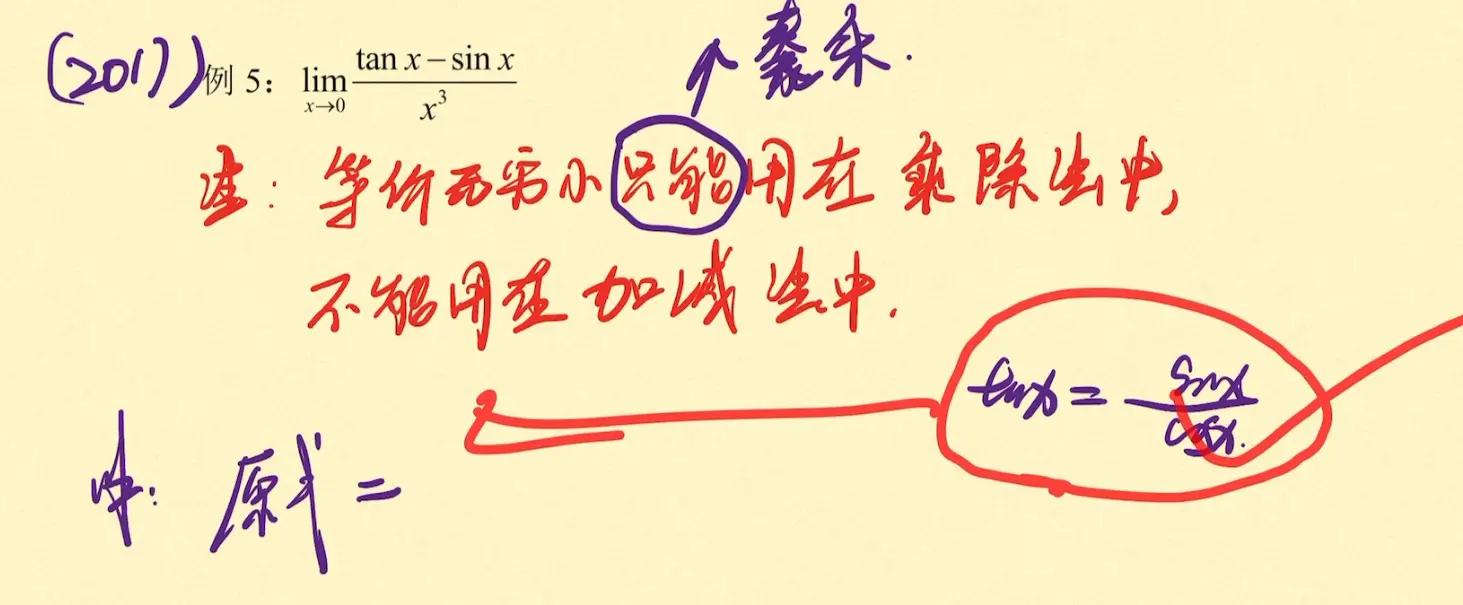 (2017) 例 5: lim x→0 (tan x − sin x) / x³
乘.
注: 等价无穷小只能用在乘除法中,
不能用在加减法中.
tanx = sinx / cosx.
解: 原式 =